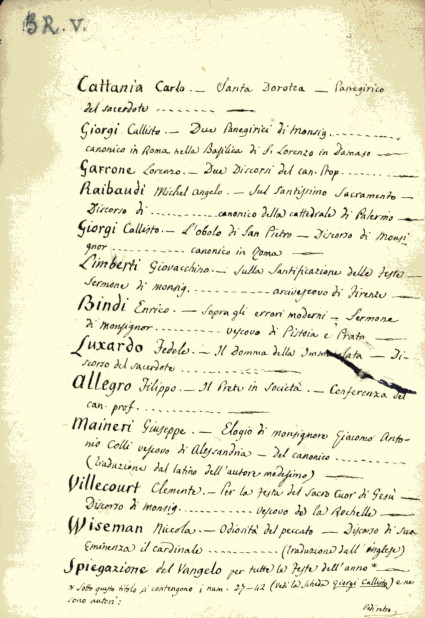 BR. V.
Cattania Carlo. — Santa Dorotea — Panegirico
del sacerdote ----------- —
Giorgi Callisto. — Due Panegirici di Monsig. ----------
canonico in Roma nella Basilica di S. Lorenzo in Damaso —
Garrone Lorenzo. — Due Discorsi del can. Prop. -------- —
Raibaudi Michel angelo. — Sul Santissimo Sacramento —
Discorso di ----------- canonico della cattedrale di Palermo —
Giorgi Callisto. — L'obolo di San Pietro — Discorso di Monsi
gnor ------------- canonico in Roma —
Limberti Giovacchino. — Sulla Santificazione delle Feste —
Sermone di monsig. ------------- arcivescovo di Firenze —
Bindi Enrico. — Sopra gli errori moderni — Sermone
di monsignor ----------- vescovo di Pistoia e Prato —
Luxardo Fedele. — Il domma della Immacolata — Di-
scorso del sacerdote ---------------- —
Allegro Filippo. — Il Prete in Società. — Conferenza del
can. prof. ---------------- —
Maineri Giuseppe. — Elogio di monsignore Giacomo Anto-
nio Colli vescovo di Alessandria — Del canonico ------------
(traduzione dal latino dell'autore medesimo) —
Villecourt Clemente. — Per la festa del Sacro Cuor di Gesù —
Discorso di monsig. ------------- vescovo de la Rochelle —
Wiseman Nicola. — Odiosità del peccato — Discorso di Sua
Eminenza il cardinale ------------- (traduzione dall'inglese) —
Spiegazione del Vangelo per tutte le Feste dell'anno * —
* Sotto questo titolo si contengono i num. 27-42 (Vedi la scheda Giorgi Callisto) e ne
sono autori:
Vedi retro